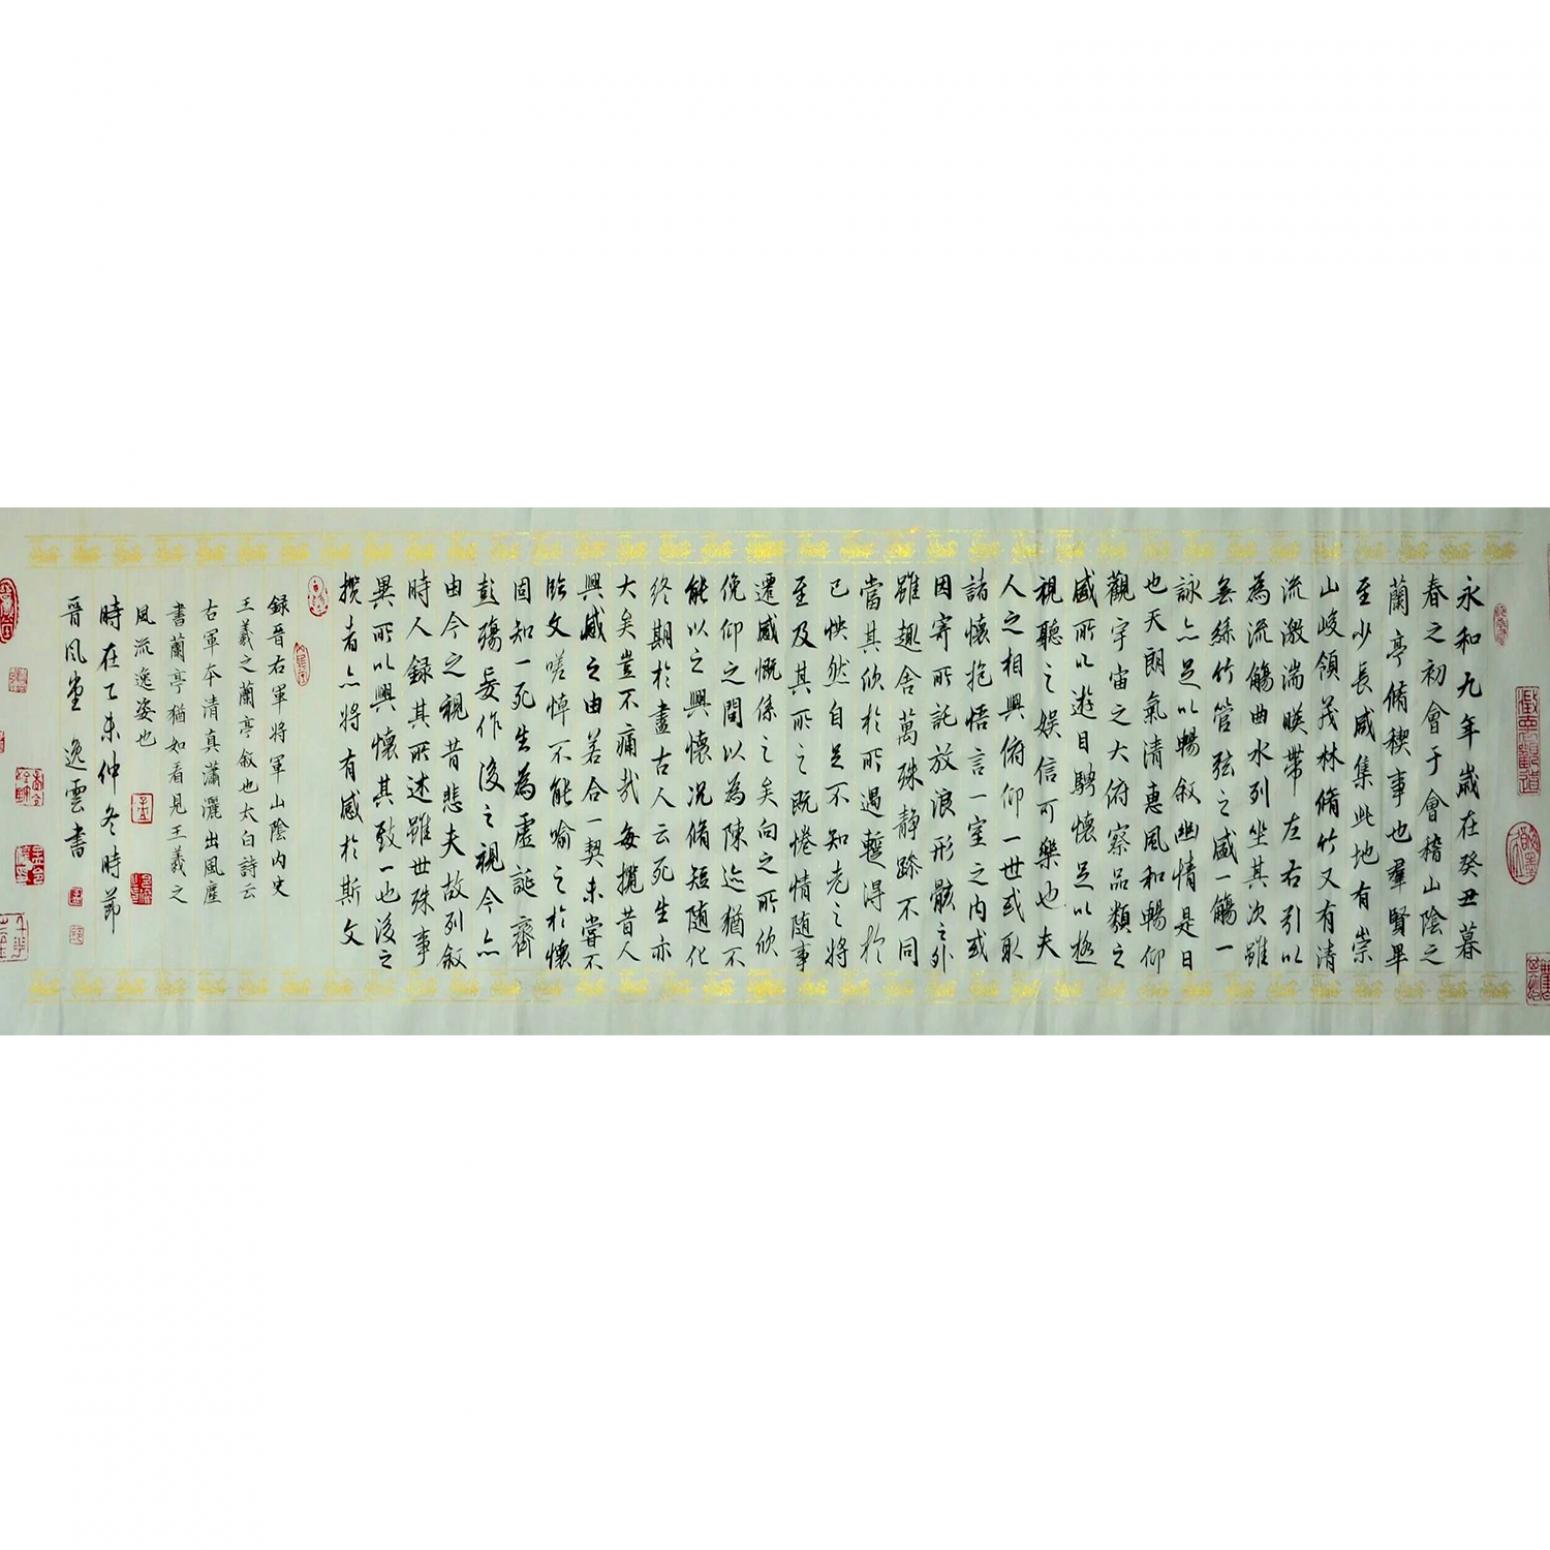 永和九年歲在癸丑暮
春之初會于會稽山陰之
蘭亭脩稧事也羣賢畢
至少長咸集此地有崇
山峻領茂林脩竹又有清
流激湍暎帶左右引以
為流觴曲水列坐其次雖
無絲竹管弦之盛一觴一
詠亦足以暢敘幽情是日
也天朗氣清惠風和暢仰
觀宇宙之大俯察品類之
盛所以遊目騁懷足以極
視聽之娛信可樂也夫
人之相與俯仰一世或取
諸懷抱悟言一室之內或
因寄所託放浪形骸之外
雖趣舍萬殊靜躁不同
當其欣於所遇蹔得於
己怏然自足不知老之將
至及其所之既惓情隨事
遷感慨係之矣向之所欣
俛仰之間以為陳迹猶不
能以之興懷況脩短隨化
終期於盡古人云死生亦
大矣豈不痛哉每攬昔人
興感之由若合一契未嘗不
臨文嗟悼不能喻之於懷
固知一死生為虛誕齊
彭殤妄作後之視今亦
由今之視昔悲夫故列敘
時人錄其所述雖世殊事
異所以興懷其致一也後之
攬者亦將有感於斯文
録晉右軍將軍山陰內史
王羲之蘭亭敘也太白詩云
右軍本清真瀟灑出風塵
書蘭亭猶如看見王羲之
風流逸姿也
時在乙未仲冬時節
晉風堂 逸雲書